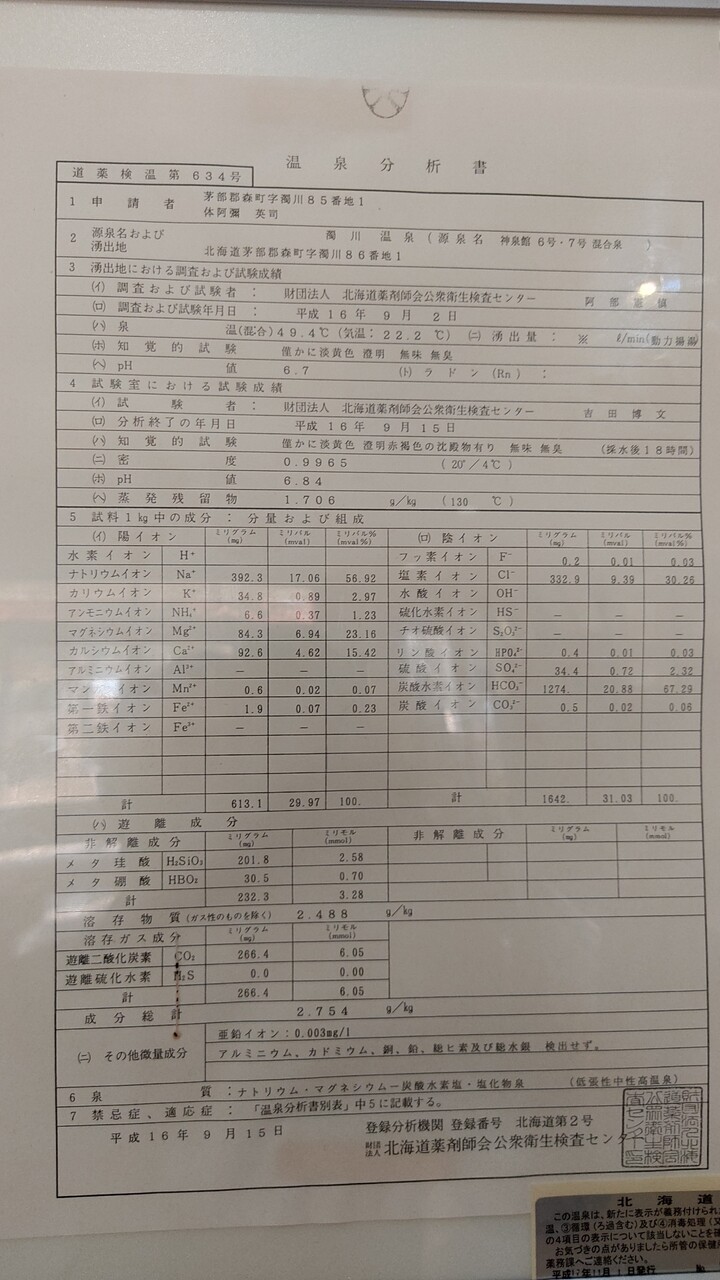 温泉分析書
道薬検温第634号
1 申請者 茅部郡森町字濁川85番地1
体阿彌 英司
2 源泉名および湧出地 濁川温泉(源泉名 神泉館 6号・7号 混合泉)
北海道茅部郡森町字濁川86番地1
3 湧出地における調査および試験成績
(イ) 調査および試験者: 財団法人 北海道薬剤師会公衆衛生検査センター 阿部
(ロ) 調査および試験年月日: 平成16年9月2日
(ハ) 泉温(混合)49.4℃(気温:22.2℃) (ニ) 湧出量: ※ ℓ/min(動力揚湯
(ホ) 知覚的試験 僅かに淡黄色 澄明 無味 無臭
(ヘ) pH値 6.7 (ト) ラドン(Rn):
4 試験室における試験成績
(イ) 試験者: 財団法人 北海道薬剤師会公衆衛生検査センター 吉田博文
(ロ) 分析終了の年月日 平成16年9月15日
(ハ) 知覚的試験 僅かに淡黄色 澄明赤褐色の沈殿物有り 無味 無臭 (採水後18時間)
(ニ) 密度 0.9965 (20°/4℃)
(ホ) pH 6.84
(ヘ) 蒸発残留物 1.706 g/kg (130 ℃)
5 試料1kg中の成分: 分量および組成
(イ) 陽イオン ミリグラム(mg) ミリバル(mval) ミリバル%(mval%) (ロ) 陰イオン ミリグラム(mg) ミリバル(mval) ミリバル%(mval%)
水素イオン H⁺ フッ素イオン F⁻ 0.2 0.01 0.03
ナトリウムイオン Na⁺ 392.3 17.06 56.92 塩素イオン Cl⁻ 332.9 9.39 30.26
カリウムイオン K⁺ 34.8 0.89 2.97 水酸イオン OH⁻
アンモニウムイオン NH₄⁺ 6.6 0.37 1.23 硫化水素イオン HS⁻ — — —
マグネシウムイオン Mg²⁺ 84.3 6.94 23.16 チオ硫酸イオン S₂O₃²⁻ — — —
カルシウムイオン Ca²⁺ 92.6 4.62 15.42 リン酸イオン HPO₄²⁻ 0.4 0.01 0.03
アルミニウムイオン Al³⁺ — — — 硫酸イオン SO₄²⁻ 34.4 0.72 2.32
マンガンイオン Mn²⁺ 0.6 0.02 0.07 炭酸水素イオン HCO₃⁻ 1274. 20.88 67.29
第一鉄イオン Fe²⁺ 1.9 0.07 0.23 炭酸イオン CO₃²⁻ 0.5 0.02 0.06
第二鉄イオン Fe³⁺ — — —
計 613.1 29.97 100. 計 1642. 31.03 100.
(ハ) 遊離成分
非解離成分 ミリグラム(mg) ミリモル(mmol) 非解離成分 ミリグラム(mg) ミリモル(mmol)
メタ珪酸 H₂SiO₃ 201.8 2.58
メタ硼酸 HBO₂ 30.5 0.70
計 232.3 3.28
溶存物質(ガス性のものを除く) 2.488 g/kg
溶存ガス成分 ミリグラム(mg) ミリモル(mmol)
遊離二酸化炭素 CO₂ 266.4 6.05
遊離硫化水素 H₂S 0.0 0.00
計 266.4 6.05
成分総計 2.754 g/kg
(ニ) その他微量成分 亜鉛イオン:0.003mg/l
アルミニウム、カドミウム、銅、鉛、総ヒ素及び総水銀 検出せず。
6 泉質:ナトリウム・マグネシウム—炭酸水素塩・塩化物泉 (低張性中性高温泉)
7 禁忌症、適応症:「温泉分析書別表」中5に記載する。
平成16年9月15日 登録分析機関 登録番号 北海道第2号
財団法人 北海道薬剤師会公衆衛生検査センター
北海道
この温泉は、新たに表示が義務付けられ
温、③循環(ろ過含む)及び④消毒処理(又
の4項目の表示について該当しないことを確
お気づきの点がありましたら所管の保健
薬務課へご連絡ください。
平成17年11月1日発行 No